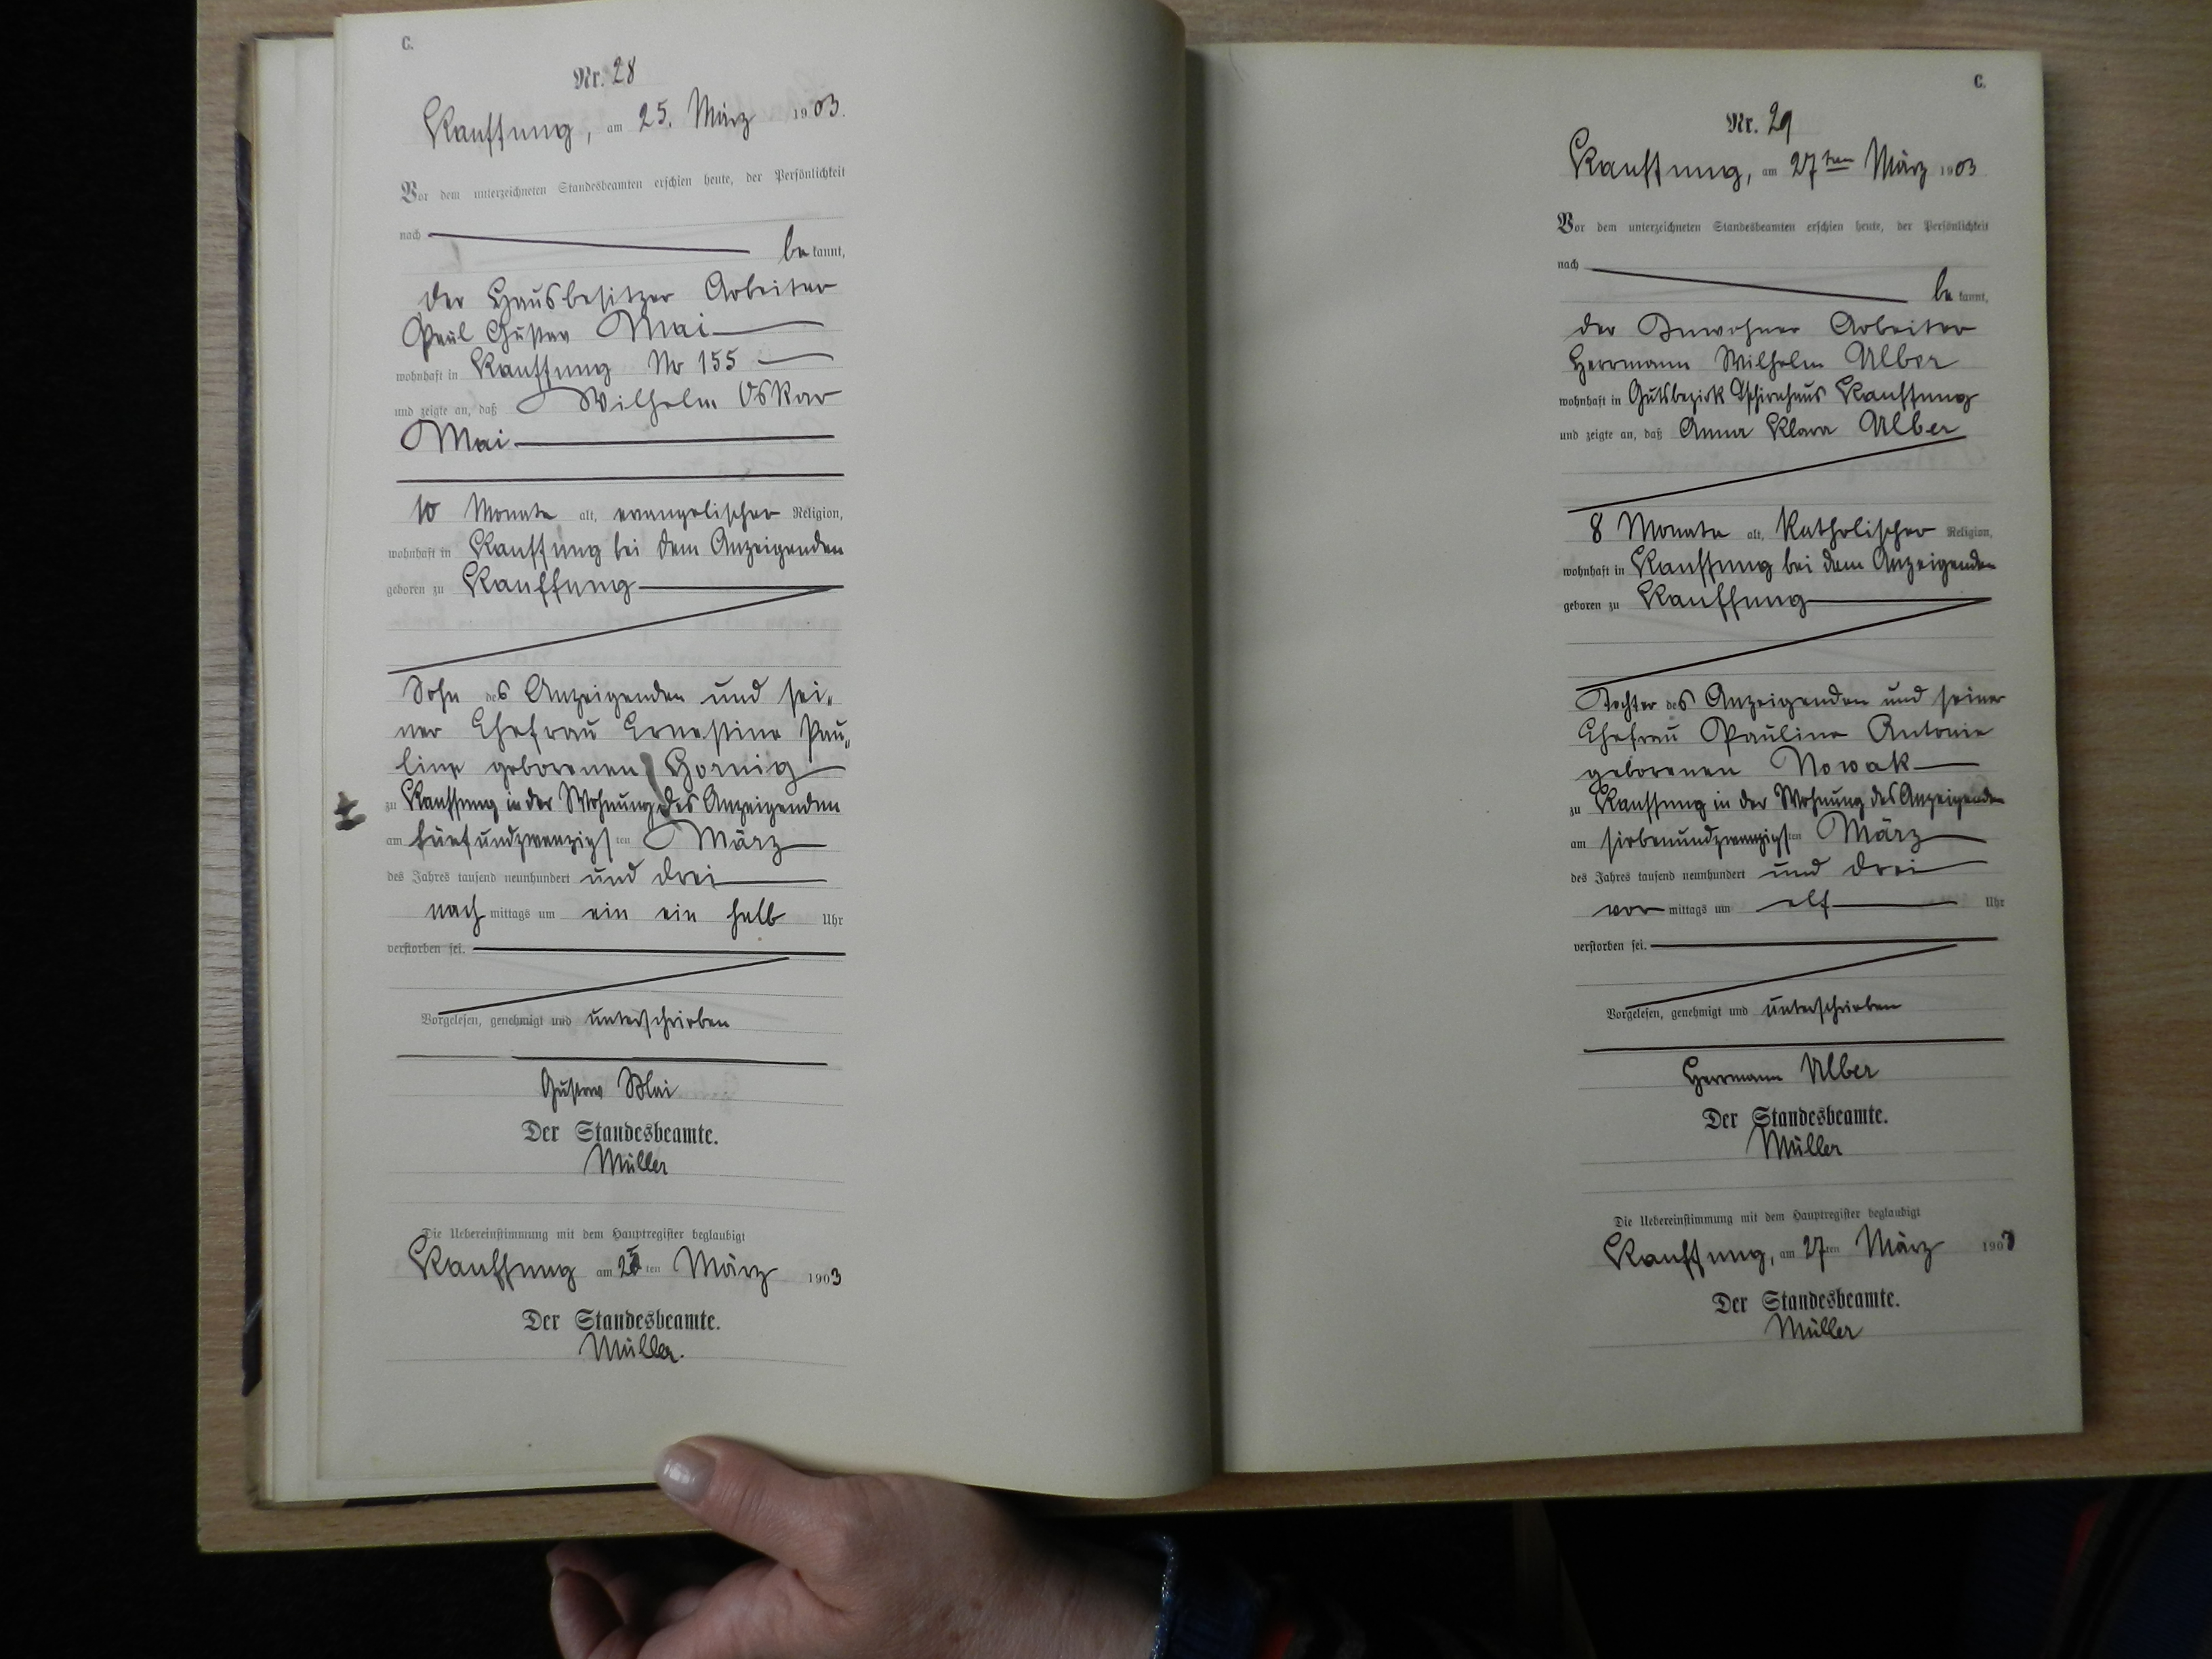 C.
Nr. 28
Kauffung, am 25. März 1903.
Vor dem unterzeichneten Standesbeamten erschien heute, der Persönlichkeit
nach
bekannt,
der Hausbesitzer Arbeiter
Paul Gustav Mai
wohnhaft in Kauffung No 155
und zeigte an, daß Wilhelm Oskar
Mai
10 Monate alt, evangelischer Religion,
wohnhaft in Kauffung bei dem Anzeigenden
geboren zu Kauffung
Sohn des Anzeigenden und sei„
ner Ehefrau Ernestine Pau„
line geborenen Hornig
zu Kauffung in der Wohnung des Anzeigenden
am fünfundzwanzigsten März
des Jahres tausend neunhundert und drei
nachmittags um ein ein halb Uhr
verstorben sei.
Vorgelesen, genehmigt und unterschrieben
Gustav Mai
Der Standesbeamte.
Müller
Die Uebereinstimmung mit dem Hauptregister beglaubigt
Kauffung am 25ten März 1903
Der Standesbeamte.
Müller.
C.
Nr. 29
Kauffung, am 27ten März 1903
Vor dem unterzeichneten Standesbeamten erschien heute, der Persönlichkeit
nach
bekannt,
der Inwohner Arbeiter
Herrmann Wilhelm Ulber
wohnhaft in Gutsbezirk Tschirnhaus Kauffung
und zeigte an, daß Anna Klara Ulber
8 Monate alt, katholischer Religion,
wohnhaft in Kauffung bei dem Anzeigenden
geboren zu Kauffung
Tochter des Anzeigenden und seiner
Ehefrau Pauline Antonie
geborenen Nowak
zu Kauffung in der Wohnung des Anzeigenden
am siebenundzwanzigsten März
des Jahres tausend neunhundert und drei
vormittags um elf Uhr
verstorben sei.
Vorgelesen, genehmigt und unterschrieben
Herrmann Ulber
Der Standesbeamte.
Müller
Die Uebereinstimmung mit dem Hauptregister beglaubigt
Kauffung, am 27ten März 1903
Der Standesbeamte.
Müller